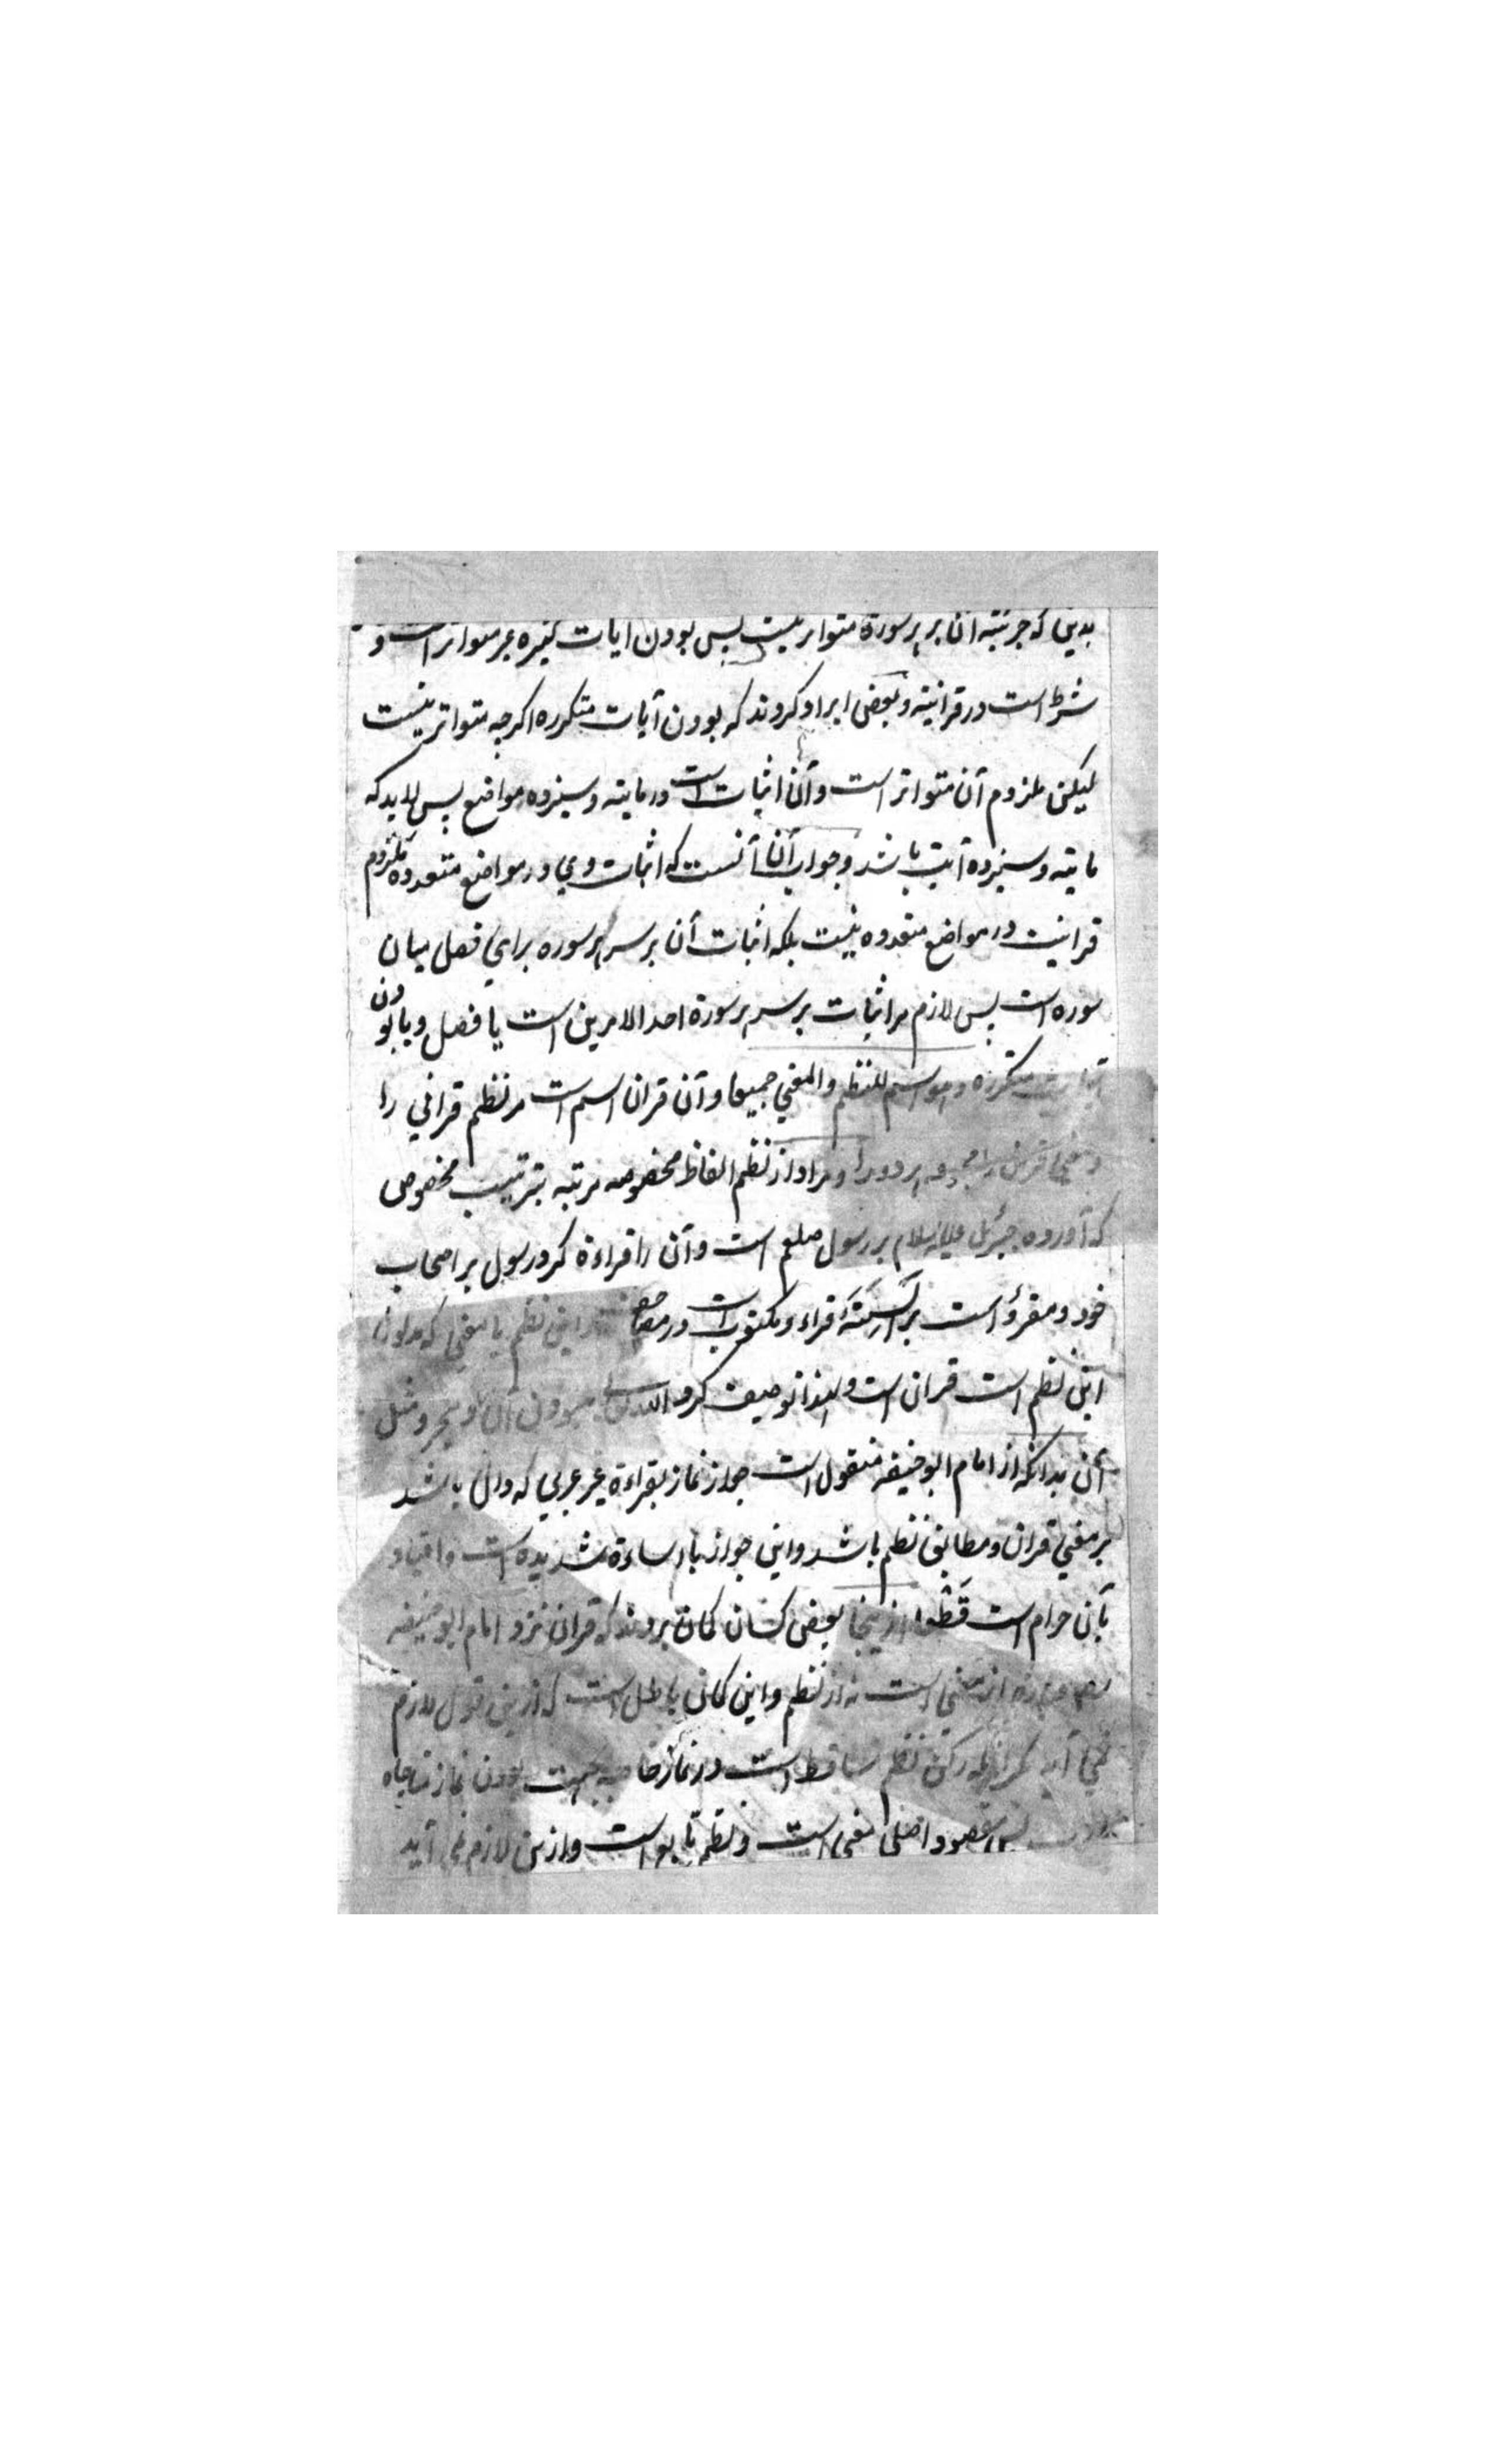 بدین که جزئیته آن بر هر سورة متواتر نیست پس بودن ایات کثیره غیر متواتر است و
شرط است در قرانیته و بعضی ایراد کردند که بودن آیات متکرره اکرچه متواتر نیست
لیکن ملزوم آن متواتر است و آن اثبات است در مایته و سیزده مواضع پس لابد که
مایته و سیزده آیت باشد و جواب آن آنست که اثبات وی در مواضع متعدده ملزوم
قرانیت در مواضع متعدده نیست بلکه اثبات آن بر سر هر سوره برای فصل میان
سوره است پس لازم مر اثبات بر سر هر سورة احد الامرین است یا فصل و یا بودن
آیات متکرره وهو اسم للنظم والمعنی جمیعا و آن قران اسم است مر نظم قرانی را
و معنی هر دو را و مراد از نظم الفاظ مخصوصه مرتبه بترتیب مخصوص
که آورده جبرئیل علیه السلام بر رسول صلعم است و آن را قراءة کرد رسول بر اصحاب
خود و مقروء است بر السنهٔ قراء و مکتوب است در مصاحف این نظم با معنی که مدلول
این نظم است قران است و لهذا توصیف کرد الله تعالی آن و مثل
آن بدانکه از امام ابو حنیفه منقول است جواز نماز بقراءة غیر عربی که دال باشد
بر معنی قران و مطابق نظم باشد و این جواز با اساءة شدیده است و اعتیاد
بآن حرام است قطعا از ینجا بعضی کسان کمان بردند که قران نزد امام ابو حنیفه
عبارة از معنی است نه از نظم و این کمان باطل است که ازین قول لازم
نمی آید مکر آنکه رکن نظم ساقط است در نماز خاصه بجهت بودن نماز مناجاة
پس مقصود اصلی معنی است و نظم تابع است و ازین لازم نمی آید